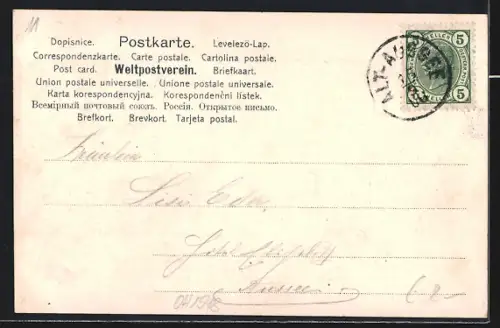 11
Dopisnice. Postkarte. Levelező-Lap.
Correspondenzkarte. Carte postale. Cartolina postale.
Post card. Weltpostverein. Briefkaart.
Union postale universelle. Unione postale universale.
Karta korespondencyjna. Korespondenční lístek.
Всемірный почтовый союзъ. Россія. Открытое письмо.
Brefkort. Brevkort. Tarjeta postal.
5 5
ALT-AUSSEE
Fräulein
Lisi Eder
Hotel
Aussee